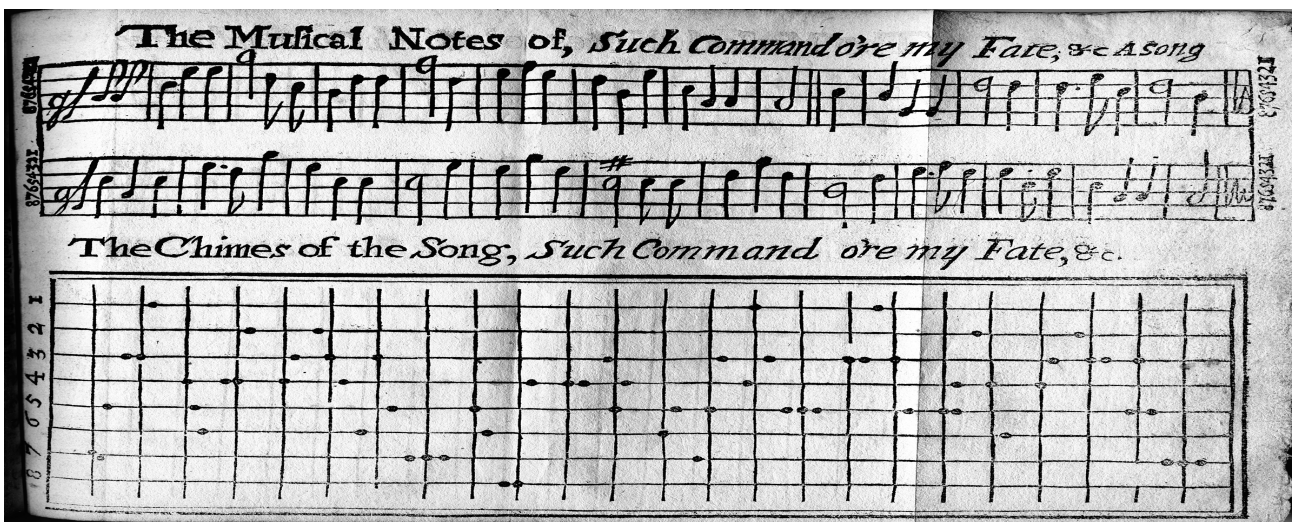 The Muſical Notes of, Such Command o're my Fate, &c A song
87654321
87654321
87654321
87654321
The Chimes of the Song, Such Command o're my Fate, &c.
1
2
3
4
5
6
7
8